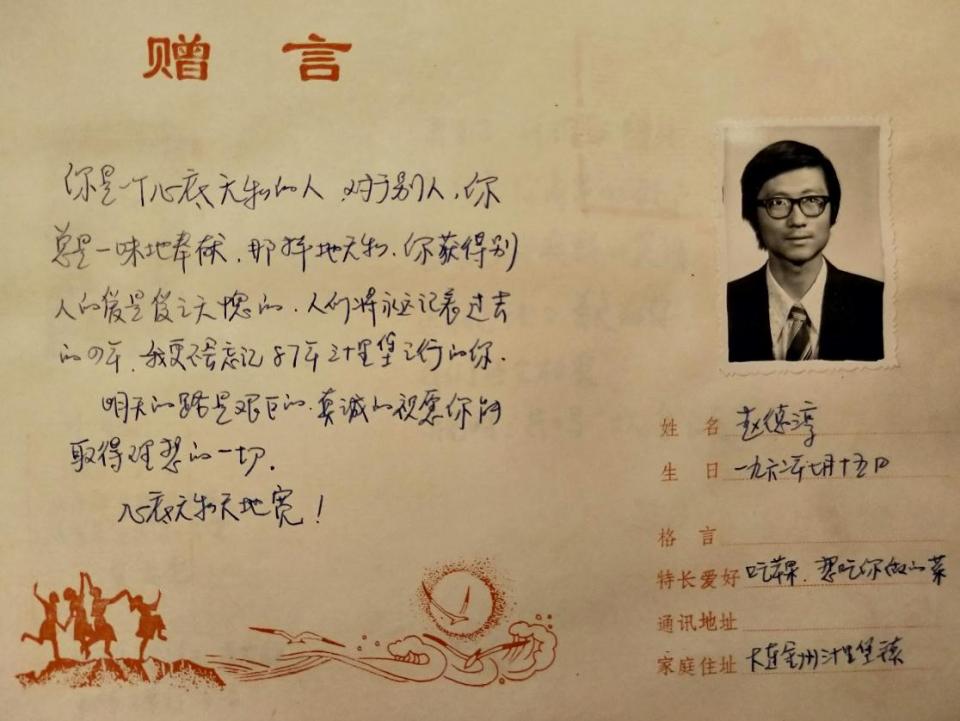 赠言
你是一个心底无私的人，对于别人，你
总是一味地奉献，那样地无私，你获得别
人的爱是受之无愧的，人们将永远记着过去
的四年，我更不会忘记87年三十里堡之行的你．
明天的路是艰巨的，真诚的祝愿你能
取得理想的一切．
心底无私天地宽！
姓名 赵德淳
生日 一九六二年七月十五日
格言
特长爱好 吃苹果，想吃你做的菜
通讯地址
家庭住址 大连金州三十里堡镇